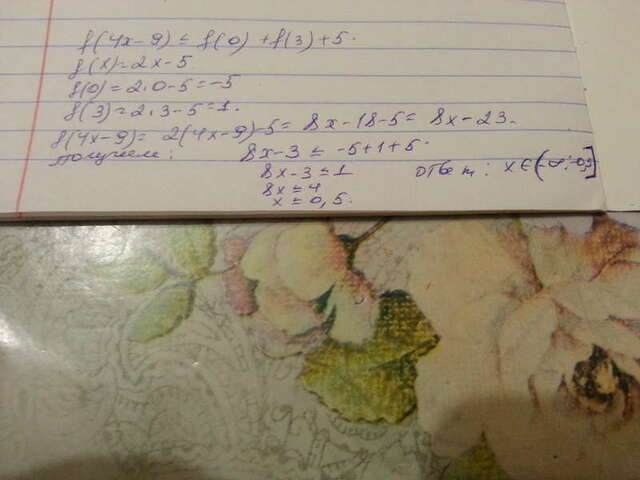 f(4x-9) ≤ f(0) + f(3) + 5.
f(x) = 2x - 5
f(0) = 2·0 - 5 = -5
f(3) = 2·3 - 5 = 1.
f(4x-9) = 2(4x-9) - 5 = 8x - 18 - 5 = 8x - 23.
получаем: 8x - 3 ≤ -5 + 1 + 5.
8x - 3 ≤ 1 ответ: x ∈ (-∞; 0,5]
8x ≤ 4
x ≤ 0,5.